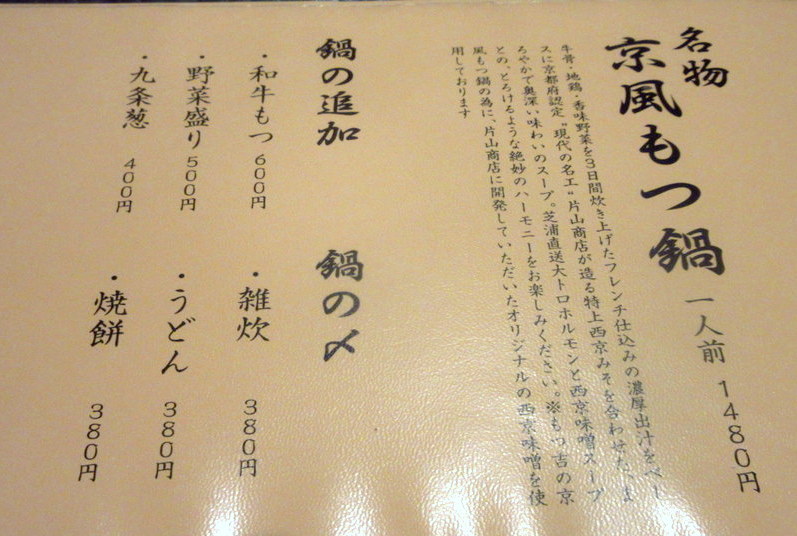 名物
京風もつ鍋 一人前 1480円
牛骨・地鶏・香味野菜を3日間炊き上げたフレンチ仕込みの濃厚出汁をベー
スに京都府認定“現代の名工”片山商店が造る特上西京みそを合わせた、ま
ろやかで奥深い味わいのスープ。芝浦直送大トロホルモンと西京味噌スープ
との、とろけるような絶妙のハーモニーをお楽しみください。※もつ吉の京
風もつ鍋の為に、片山商店に開発していただいたオリジナルの西京味噌を使
用しております
鍋の追加
・和牛もつ 600円
・野菜盛り 500円
・九条葱 400円
鍋の〆
・雑炊 380円
・うどん 380円
・焼餅 380円